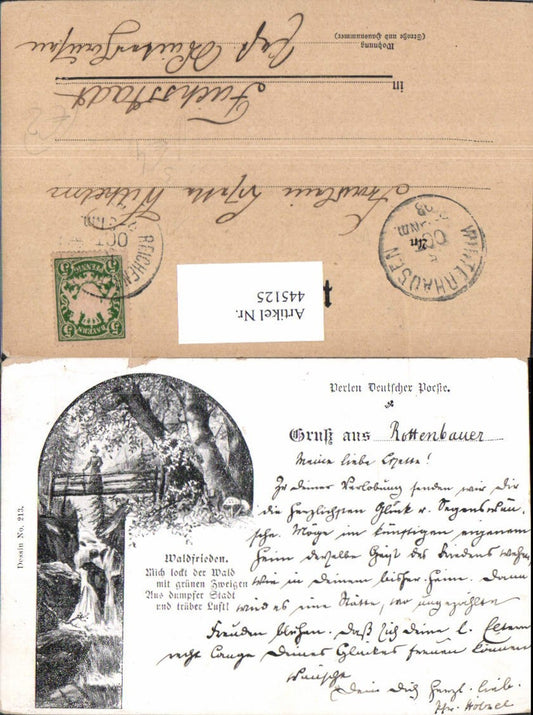 Wohnung
(Straße und Hausnummer)
in
Fuchsstadt
Wilhelm
An
WINTERHAUSEN
5
OCT
REICHEN
OCT
BAYERN
5 PFENNIG 5
Artikel Nr.
445125
Perlen Deutscher Poesie.
Gruß aus Rottenbauer
Meine liebe Babette!
Zu Deiner Verlobung senden wir Dir
die herzlichsten Glück u. Segenswün-
sche. Möge im künftigen eigenen
Heim derselbe Geist des Friedens wehen,
wie in Deinem bisher. Heim. Dann
wird es eine Stätte, wo ungezählte
Freuden blühen. Daß sich deine l. Eltern
recht lange Deines Glückes freuen können
wünscht
Dein Dich herzl. lieb.
Pfr.
Waldfrieden.
Mich lockt der Wald
mit grünen Zweigen
Aus dumpfer Stadt
und trüber Luft!
Dessin No. 213.